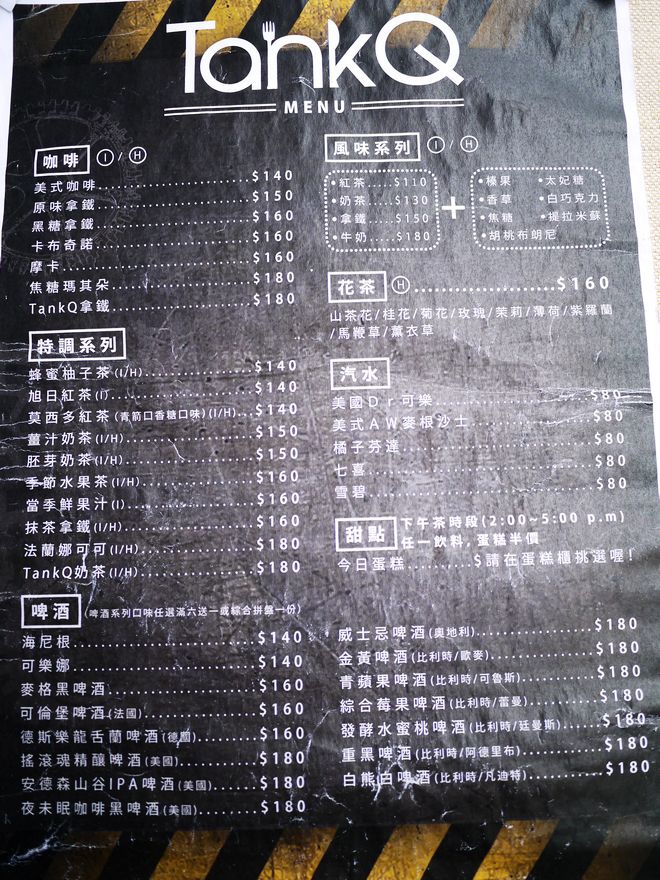 TankQ
MENU
咖啡 I/H
美式咖啡 $140
原味拿鐵 $150
黑糖拿鐵 $160
卡布奇諾 $160
摩卡 $160
焦糖瑪其朵 $180
TankQ拿鐵 $180
特調系列
蜂蜜柚子茶(I/H) $140
旭日紅茶(I) $140
莫西多紅茶(青箭口香糖口味)(I/H) $140
薑汁奶茶(I/H) $150
胚芽奶茶(I/H) $150
季節水果茶(I/H) $160
當季鮮果汁(I) $160
抹茶拿鐵(I/H) $160
法蘭娜可可(I/H) $180
TankQ奶茶(I/H) $180
風味系列 I/H
•紅茶.....$110
•奶茶.....$130
•拿鐵.....$150
•牛奶.....$180
+
•榛果 •太妃糖
•香草 •白巧克力
•焦糖 •提拉米蘇
•胡桃布朗尼
花茶 H $160
山茶花/桂花/菊花/玫瑰/茉莉/薄荷/紫羅蘭
/馬鞭草/薰衣草
汽水
美國Dr可樂 $80
美式AW麥根沙士 $80
橘子芬達 $80
七喜 $80
雪碧 $80
甜點 下午茶時段(2:00~5:00 p.m)
任一飲料,蛋糕半價
今日蛋糕..........$請在蛋糕櫃挑選喔!
啤酒 (啤酒系列口味任選滿六送一或綜合拼盤一份)
海尼根 $140
可樂娜 $140
麥格黑啤酒 $160
可倫堡啤酒(法國) $160
德斯樂龍舌蘭啤酒(德國) $160
搖滾魂精釀啤酒(美國) $180
安德森山谷IPA啤酒(美國) $180
夜未眠咖啡黑啤酒(美國) $180
威士忌啤酒(奧地利) $180
金黃啤酒(比利時/歐麥) $180
青蘋果啤酒(比利時/可魯斯) $180
綜合莓果啤酒(比利時/蕾曼) $180
發酵水蜜桃啤酒(比利時/廷曼斯) $180
重黑啤酒(比利時/阿德里布) $180
白熊白啤酒(比利時/凡迪特) $180